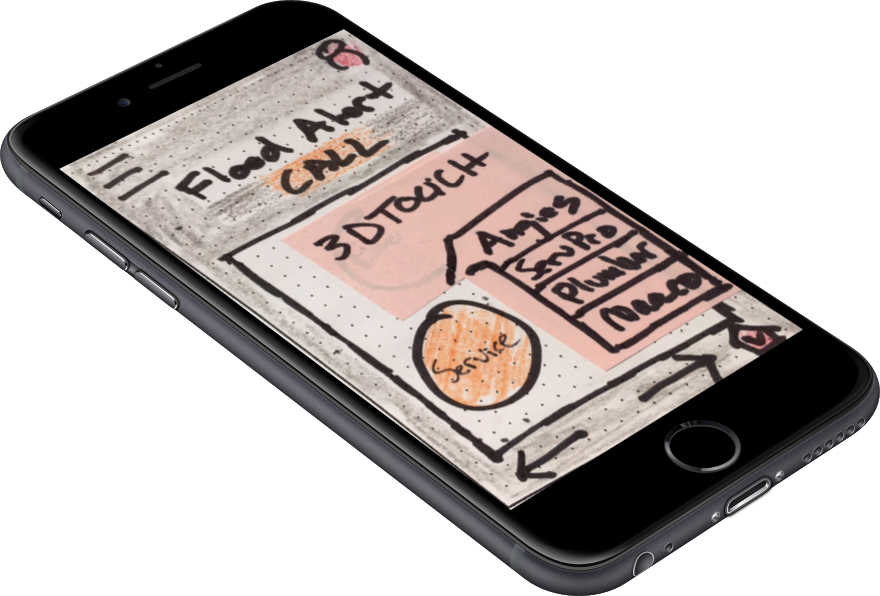 Flood Alert
CALL
3D TOUCH
Angies
ServPro
Plumber
Service